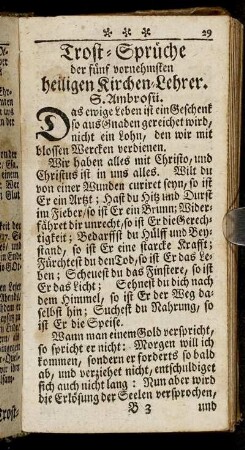 29
Trost-Sprüche
der fünf vornehmsten
heiligen Kirchen-Lehrer.
S. Ambrosii.
Das ewige Leben ist ein Geschenk
so aus Gnaden gereichet wird,
nicht ein Lohn, den wir mit
blossen Wercken verdienen.
Wir haben alles mit Christo, und
Christus ist in uns alles. Wilt du
von einer Wunden curiret seyn, so ist
Er ein Artzt; Hast du Hitz und Durst
im Fieber, so ist Er ein Brunn; Wider-
fähret dir unrecht, so ist Er die Gerech-
tigkeit; Bedarffst du Hülff und Bey-
stand, so ist Er eine starcke Krafft;
Fürchtest du den Tod, so ist Er das Le-
ben; Scheuest du das Finstere, so ist
Er das Licht; Sehnest du dich nach
dem Himmel, so ist Er der Weg da-
selbst hin; Suchest du Nahrung, so
ist Er die Speise.
Wann man einem Gold verspricht,
so spricht er nicht: Morgen will ich
kommen, sondern er forderts so bald
ab, und verziehet nicht, entschuldiget
sich auch nicht lang: Nun aber wird
die Erlösung der Seelen versprochen,
B 3 und